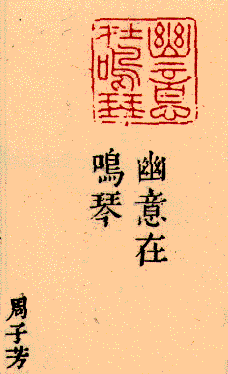 幽意在
鳴琴
幽意在
鳴琴
周子芳